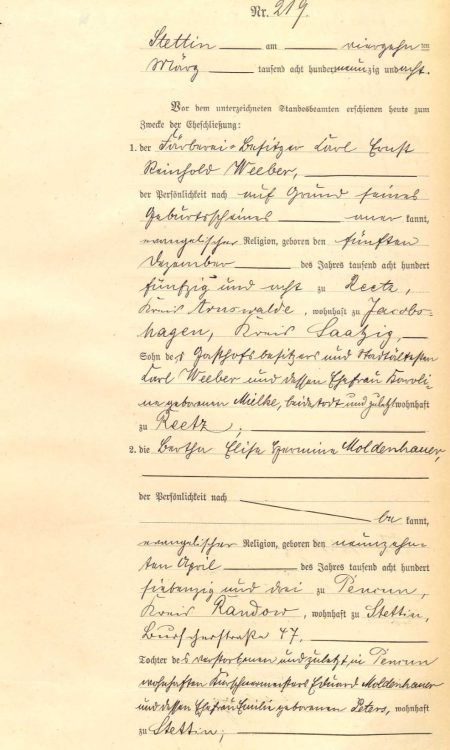 Nr. 219.
Stettin am vierzehnten
März tausend acht hundert neunzig und acht.
Vor dem unterzeichneten Standesbeamten erschienen heute zum
Zwecke der Eheschließung:
1. der Färberei-Besitzer Carl Ernst
Reinhold Weeber,
der Persönlichkeit nach auf Grund seines
Geburtsscheines aner kannt,
evangelischer Religion, geboren den fünften
Dezember des Jahres tausend acht hundert
fünfzig und acht zu Reetz,
Kreis Arnswalde, wohnhaft zu Jacobs-
hagen, Kreis Saatzig,
Sohn des Gasthofsbesitzers und Stadtältesten
Carl Weeber und dessen Ehefrau Karoli-
ne geborenen Mülke, beide todt und zuletzt wohnhaft
zu Reetz;
2. die Bertha Elise Hermine Moldenhauer,
der Persönlichkeit nach
be kannt,
evangelischer Religion, geboren den neunzehn-
ten April des Jahres tausend acht hundert
siebenzig und drei zu Pencun,
Kreis Randow, wohnhaft zu Stettin,
Burscherstraße 47.
Tochter des verstorbenen und zuletzt in Pencun
wohnhaften Kürschnermeisters Eduard Moldenhauer
und dessen Ehefrau Emilie geborenen Peters, wohnhaft
zu Stettin;